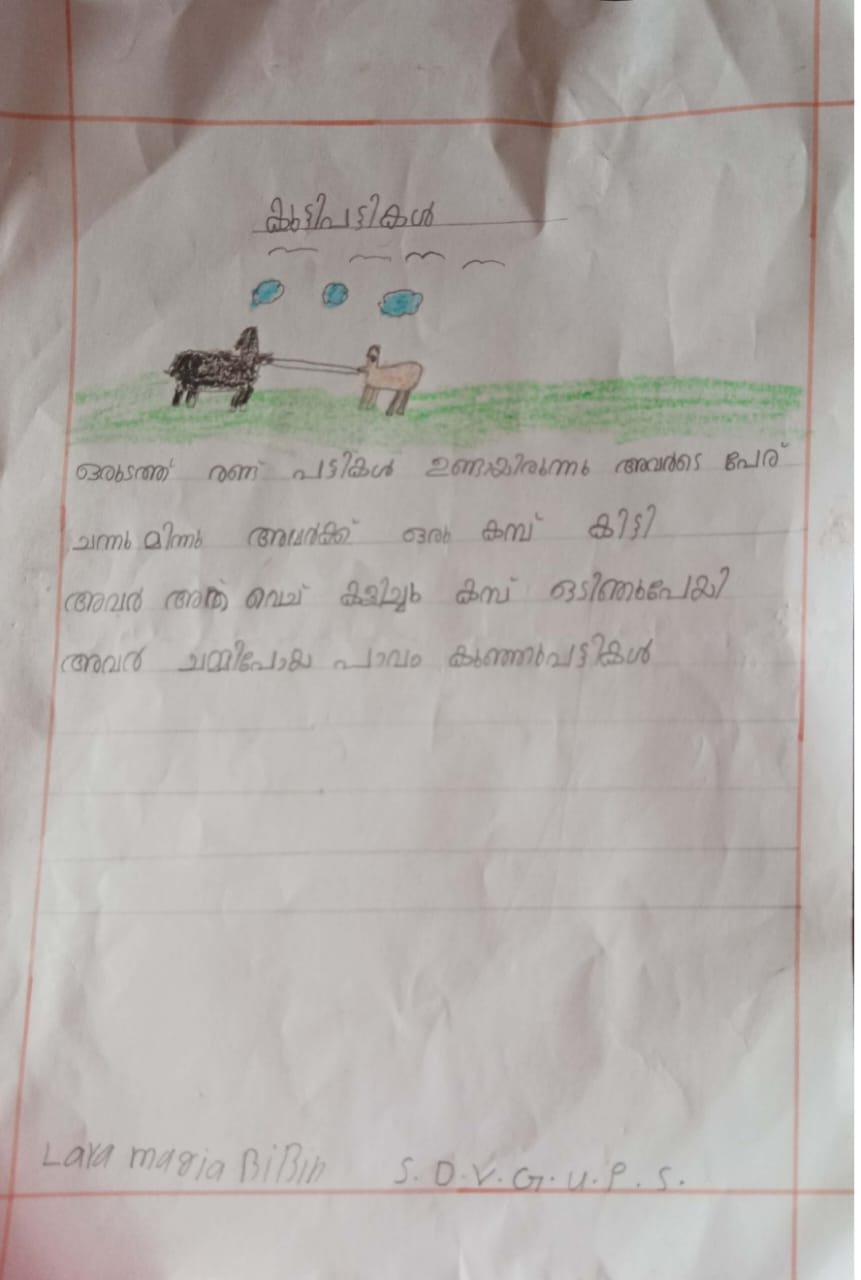 കുട്ടിപട്ടികൾ
ഒരുടത്ത് രണ് പട്ടികൾ ഉണ്ടായിരുന്നു അവരുടെ പേര്
ചന്നു മിന്നു അവർക്ക് ഒരു കമ്പ് കിട്ടി
അവർ അത് വെച് കളിച്ചു കമ്പ് ഒടിഞ്ഞുപേയി
അവർ ചമ്മിപോയ പാവം കുഞ്ഞുപട്ടികൾ
Laya maria BiBin S.D.V.G.U.P.S.